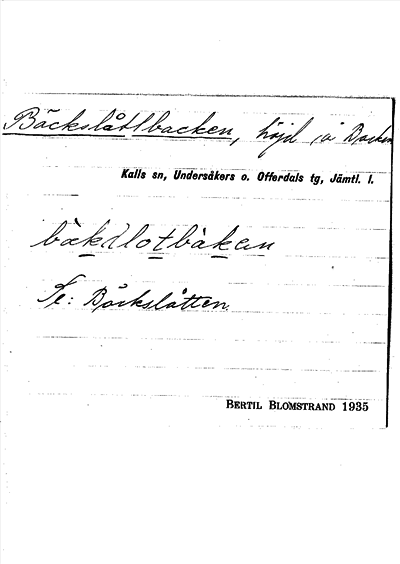 Bäckslåttbacken, höjd i Backen
Kalls sn, Undersåkers o. Offerdals tg, Jämtl. l.
Se: Bäckslåtten
BERTIL BLOMSTRAND 1935